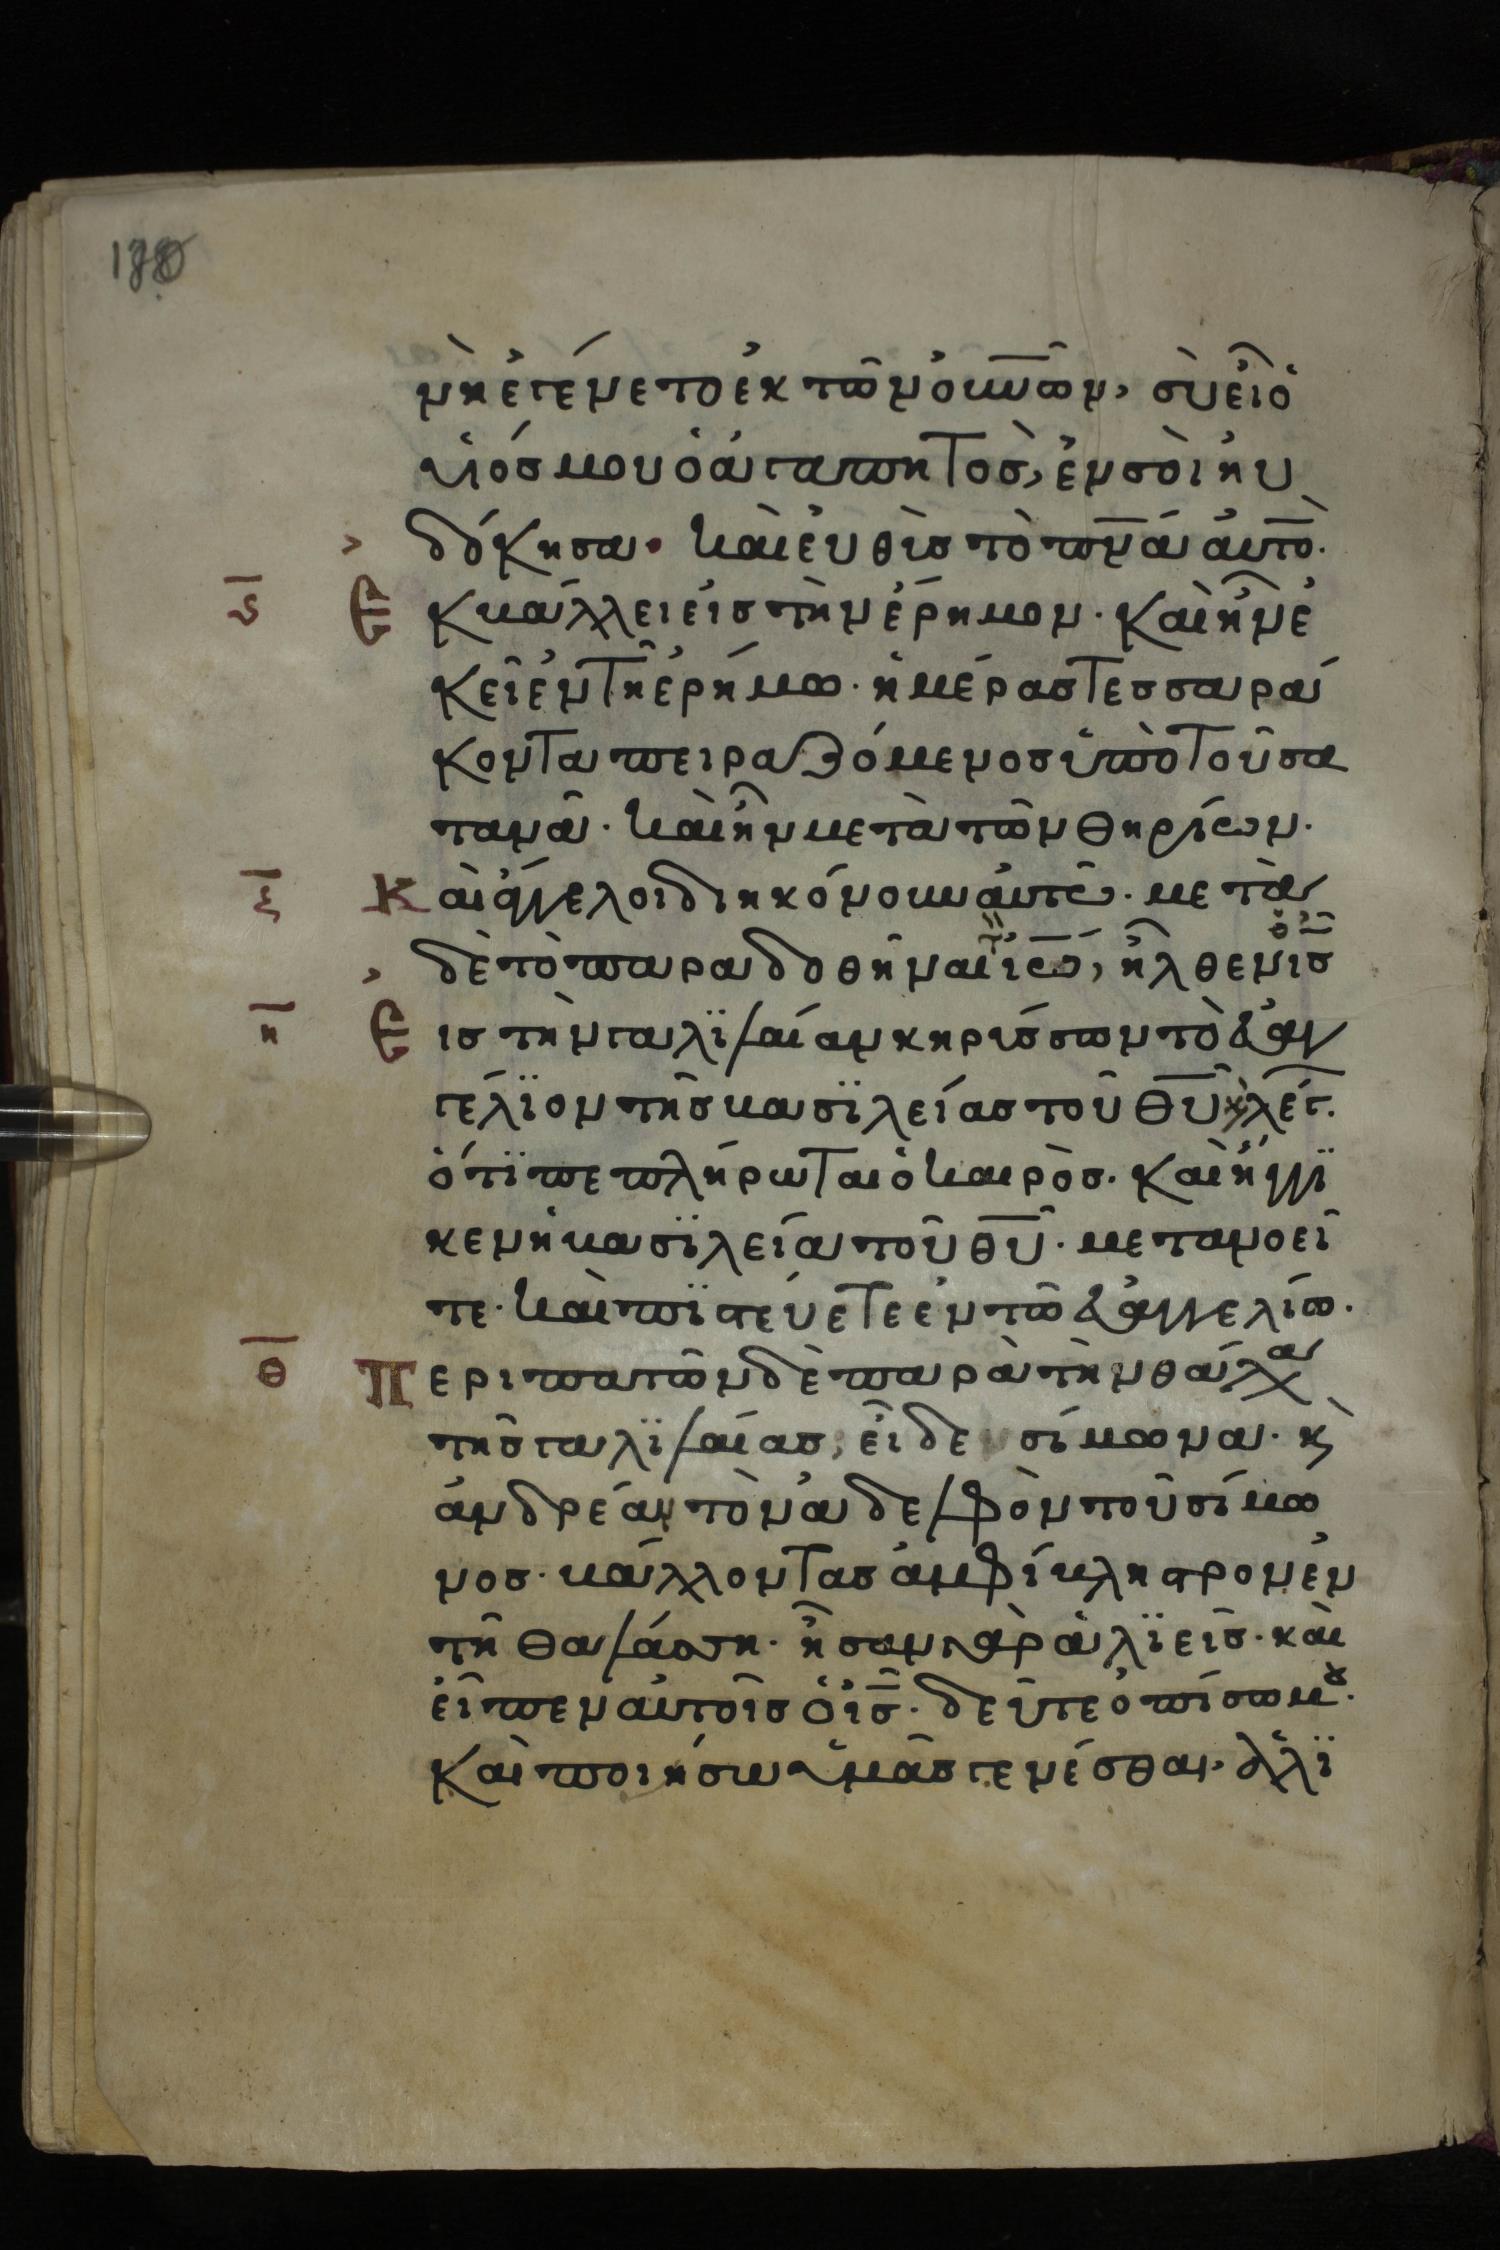 188
νὴ ἐγένετο ἐκ τῶν οὐνῶν, σὺ εἶ ὁ
υἱόσ μου ὁ ἀγαπητοσ, ἐν σοὶ ηυ
δόκησα. καὶ ἐυθὺσ τὸ πνᾱ ἀυτὸ.
ϛ Ἐκβάλλει εἰσ τὴν ἔρημον. καὶ ἦν ἐ
κεῖ ἐν τῆ ἐρήμω. ἡμέρασ τεσσαρά
κοντα πειραζόμενοσ ὑπὸ τοῦ σα
τανᾶ. καὶ ἦν μετὰ τῶν θηρίων.
ζ Καὶ ἄγγελοι διηκόνουν ἀυτῶ. μετὰ
δὲ τὸ παραδοθῆναι τ ἰω, ἦλθεν ὁ ισ
η Ἐισ τὴν γαλϊλαίαν κηρύσσων τὸ ἐυαγ
γέλϊον τῆσ βασϊλείασ τοῦ θυ κὶ λέγ.
ὅτϊ πεπλήρωται ὁ καιρὸσ. καὶ ἤγγϊ
κεν ἡ βασϊλεία τοῦ θυ. μετανοεῖ
τε. καὶ πϊστέυετε ἐν τῶ ἐυαγγελίω.
θ Περιπατῶν δὲ παρὰ τὴν θάλασ
τῆσ γαλϊλαίασ, εἶδε σίμωνα. κὶ
ἀνδρέαν τὸν ἀδελφὸν τοῦ σίμω
νοσ. βάλλοντασ ἀμφίβληστρον ἐν
τῆ θαλάσση. ἦσαν γὰρ ἁλϊεῖσ. καὶ
εἶπεν ἀυτοῖσ ὁ ισ. δεῦτε ὀπίσω μου.
καὶ ποιήσω ὑμᾶσ γενέσθαι ἁλϊ